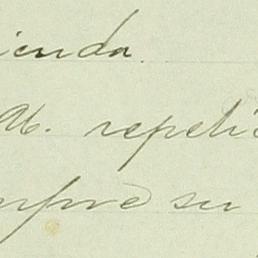 ienda.
M. repeti
mpre su